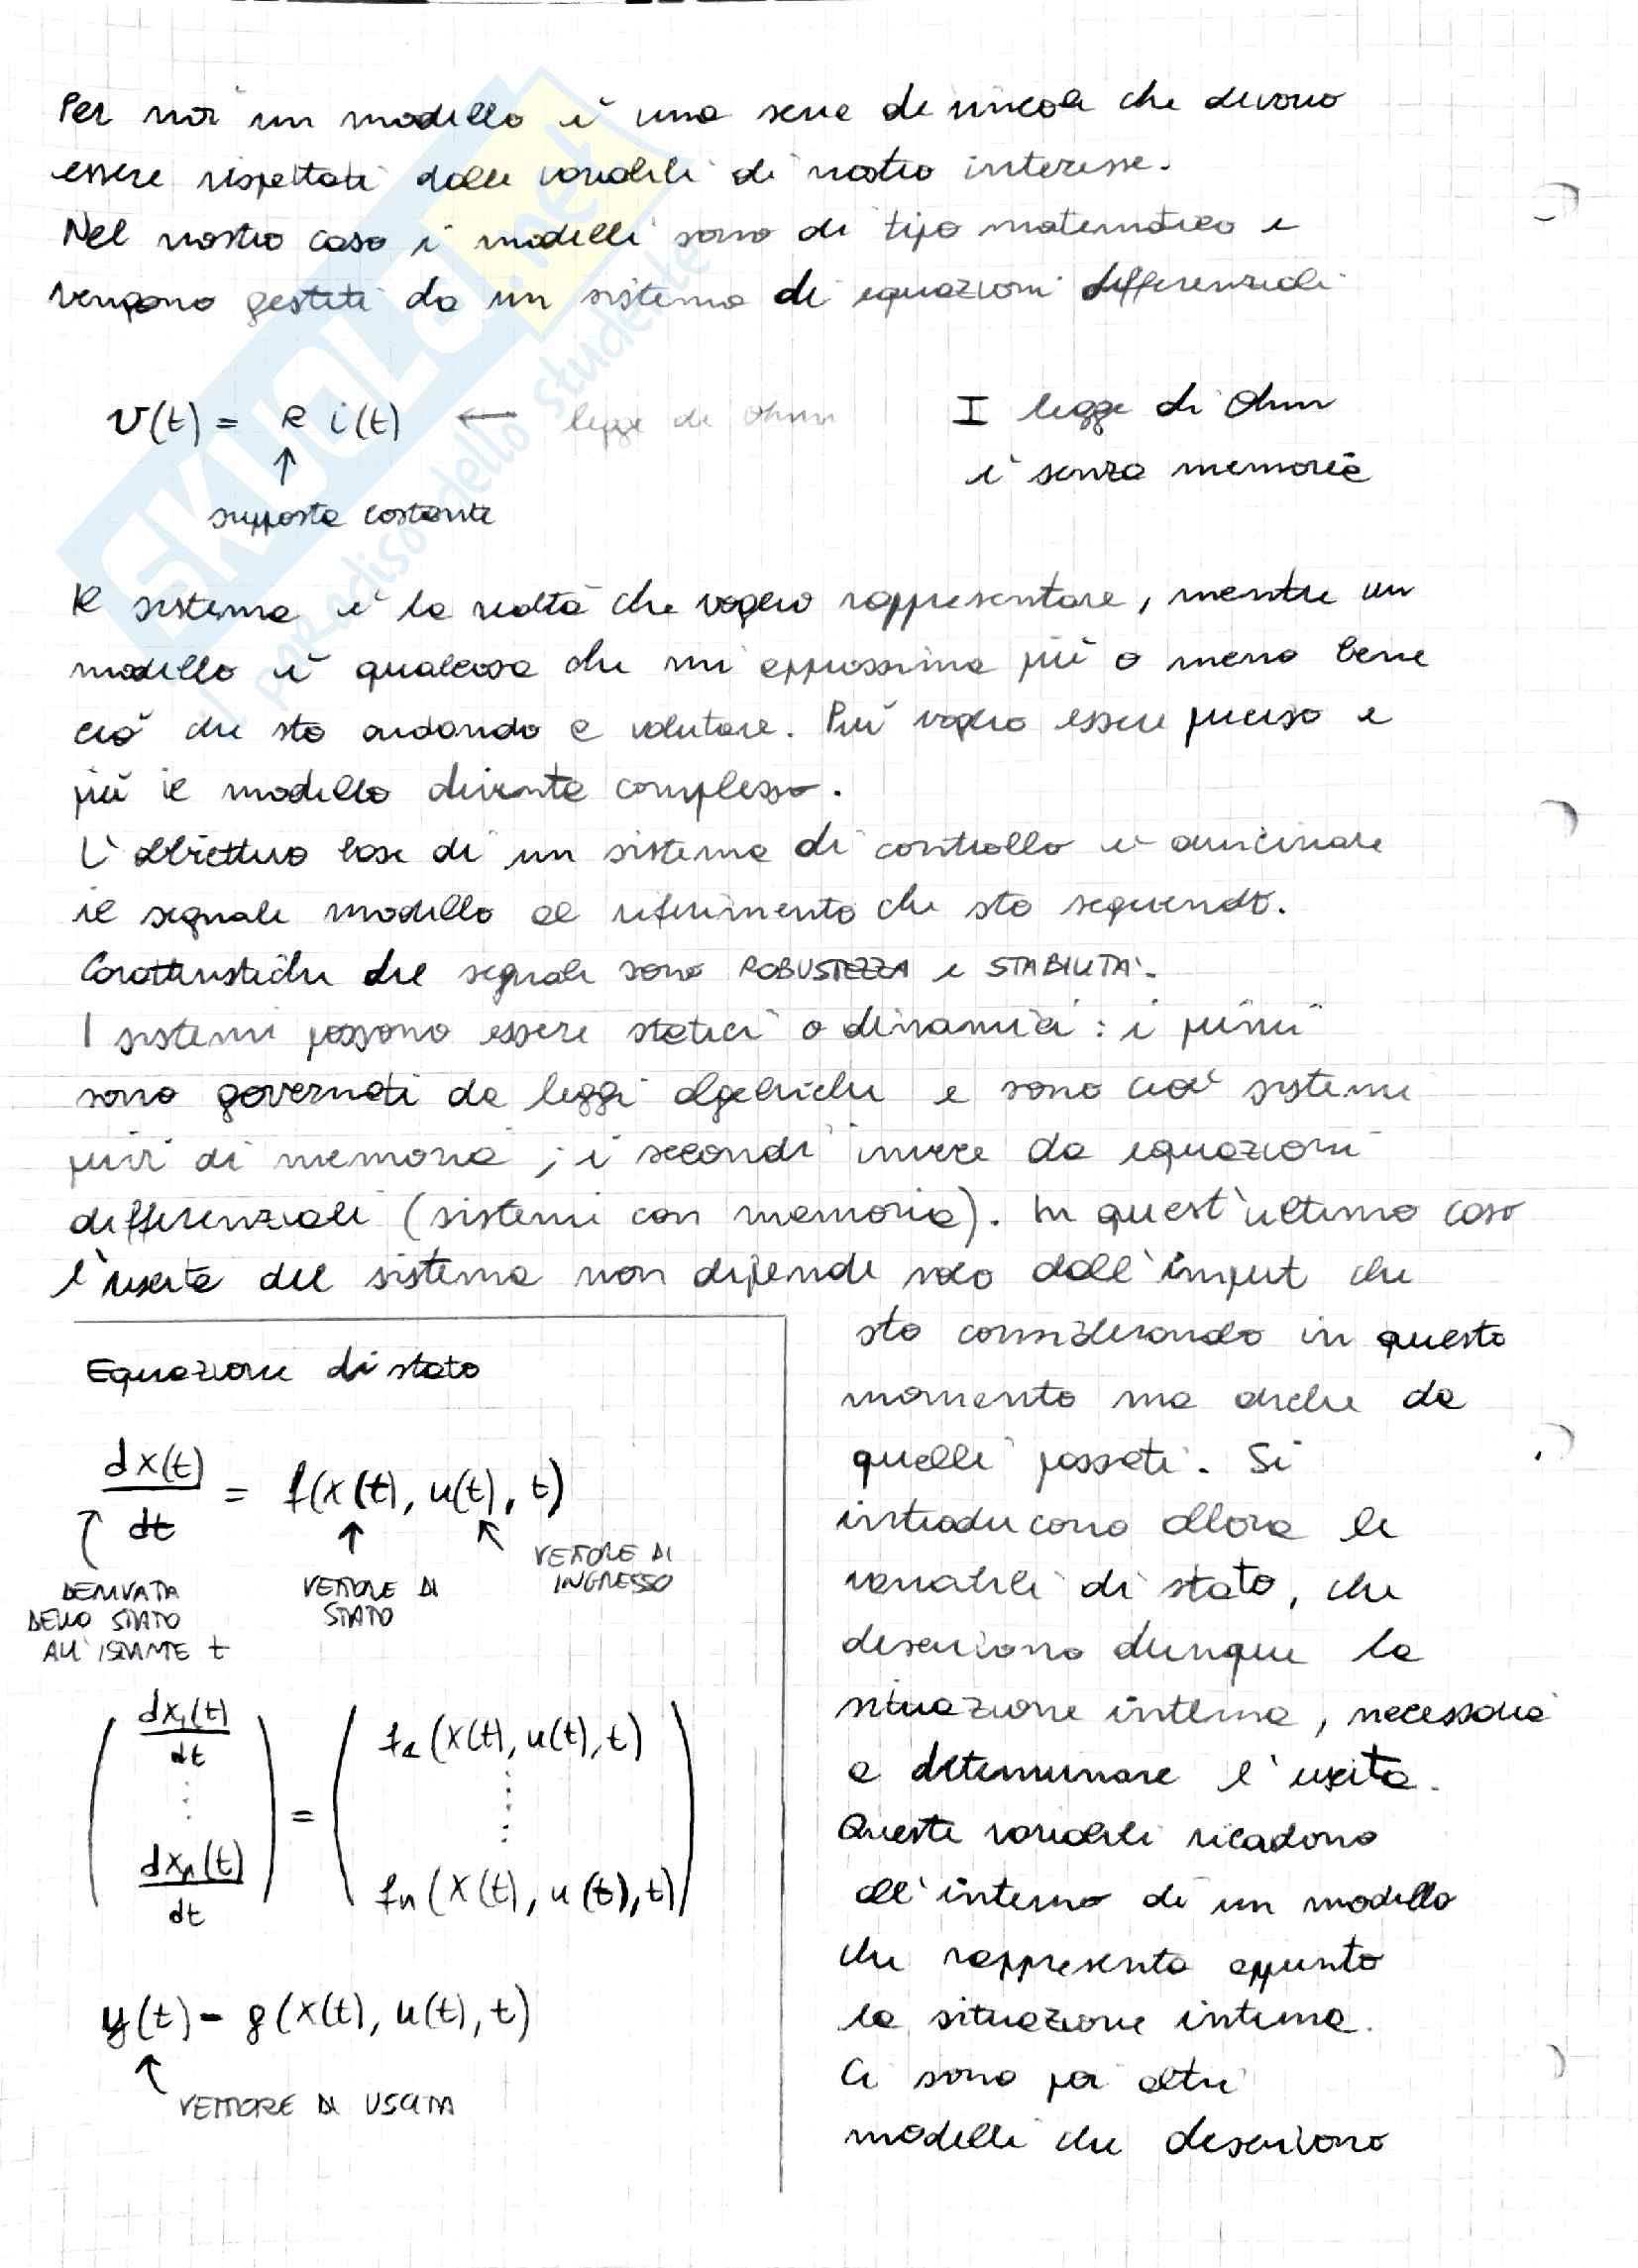 Per noi un modello è una serie di vincoli che devono
essere rispettati dalle variabili di nostro interesse.
Nel nostro caso i modelli sono di tipo matematico e
vengono gestiti da un sistema di equazioni differenziali
v(t) = R i(t) ← legge di Ohm
↑
supposta costante
I legge di Ohm
è senza memoria
Il sistema è la realtà che voglio rappresentare, mentre un
modello è qualcosa che mi approssima più o meno bene
ciò che sto andando a valutare. Più voglio essere preciso e
più il modello diventa complesso.
L'obiettivo base di un sistema di controllo è avvicinare
il segnale modello al riferimento che sto seguendo.
Caratteristiche del segnale sono ROBUSTEZZA e STABILITÀ.
I sistemi possono essere statici o dinamici: i primi
sono governati da leggi algebriche e sono cioè sistemi
privi di memoria; i secondi invece da equazioni
differenziali (sistemi con memoria). In quest'ultimo caso
l'uscita del sistema non dipende solo dall'imput che
sto considerando in questo
momento ma anche da
quelli passati. Si
introducono allora le
variabili di stato, che
descrivono dunque la
situazione interna, necessaria
a determinare l'uscita.
Queste variabili ricadono
all'interno di un modello
che rappresenta appunto
la situazione interna.
Ci sono poi altri
modelli che descrivono
Equazione di stato
dx(t)/dt = f(x(t), u(t), t)
DERIVATA
DELLO STATO
ALL'ISTANTE t
VETTORE DI
STATO
VETTORE DI
INGRESSO
dx₁(t)/dt = f₁(x(t), u(t), t)
⋮ ⋮
dxₙ(t)/dt fₙ(x(t), u(t), t)
y(t) = g(x(t), u(t), t)
↑
VETTORE DI USCITA
SKUOLA.net
il paradiso dello studente